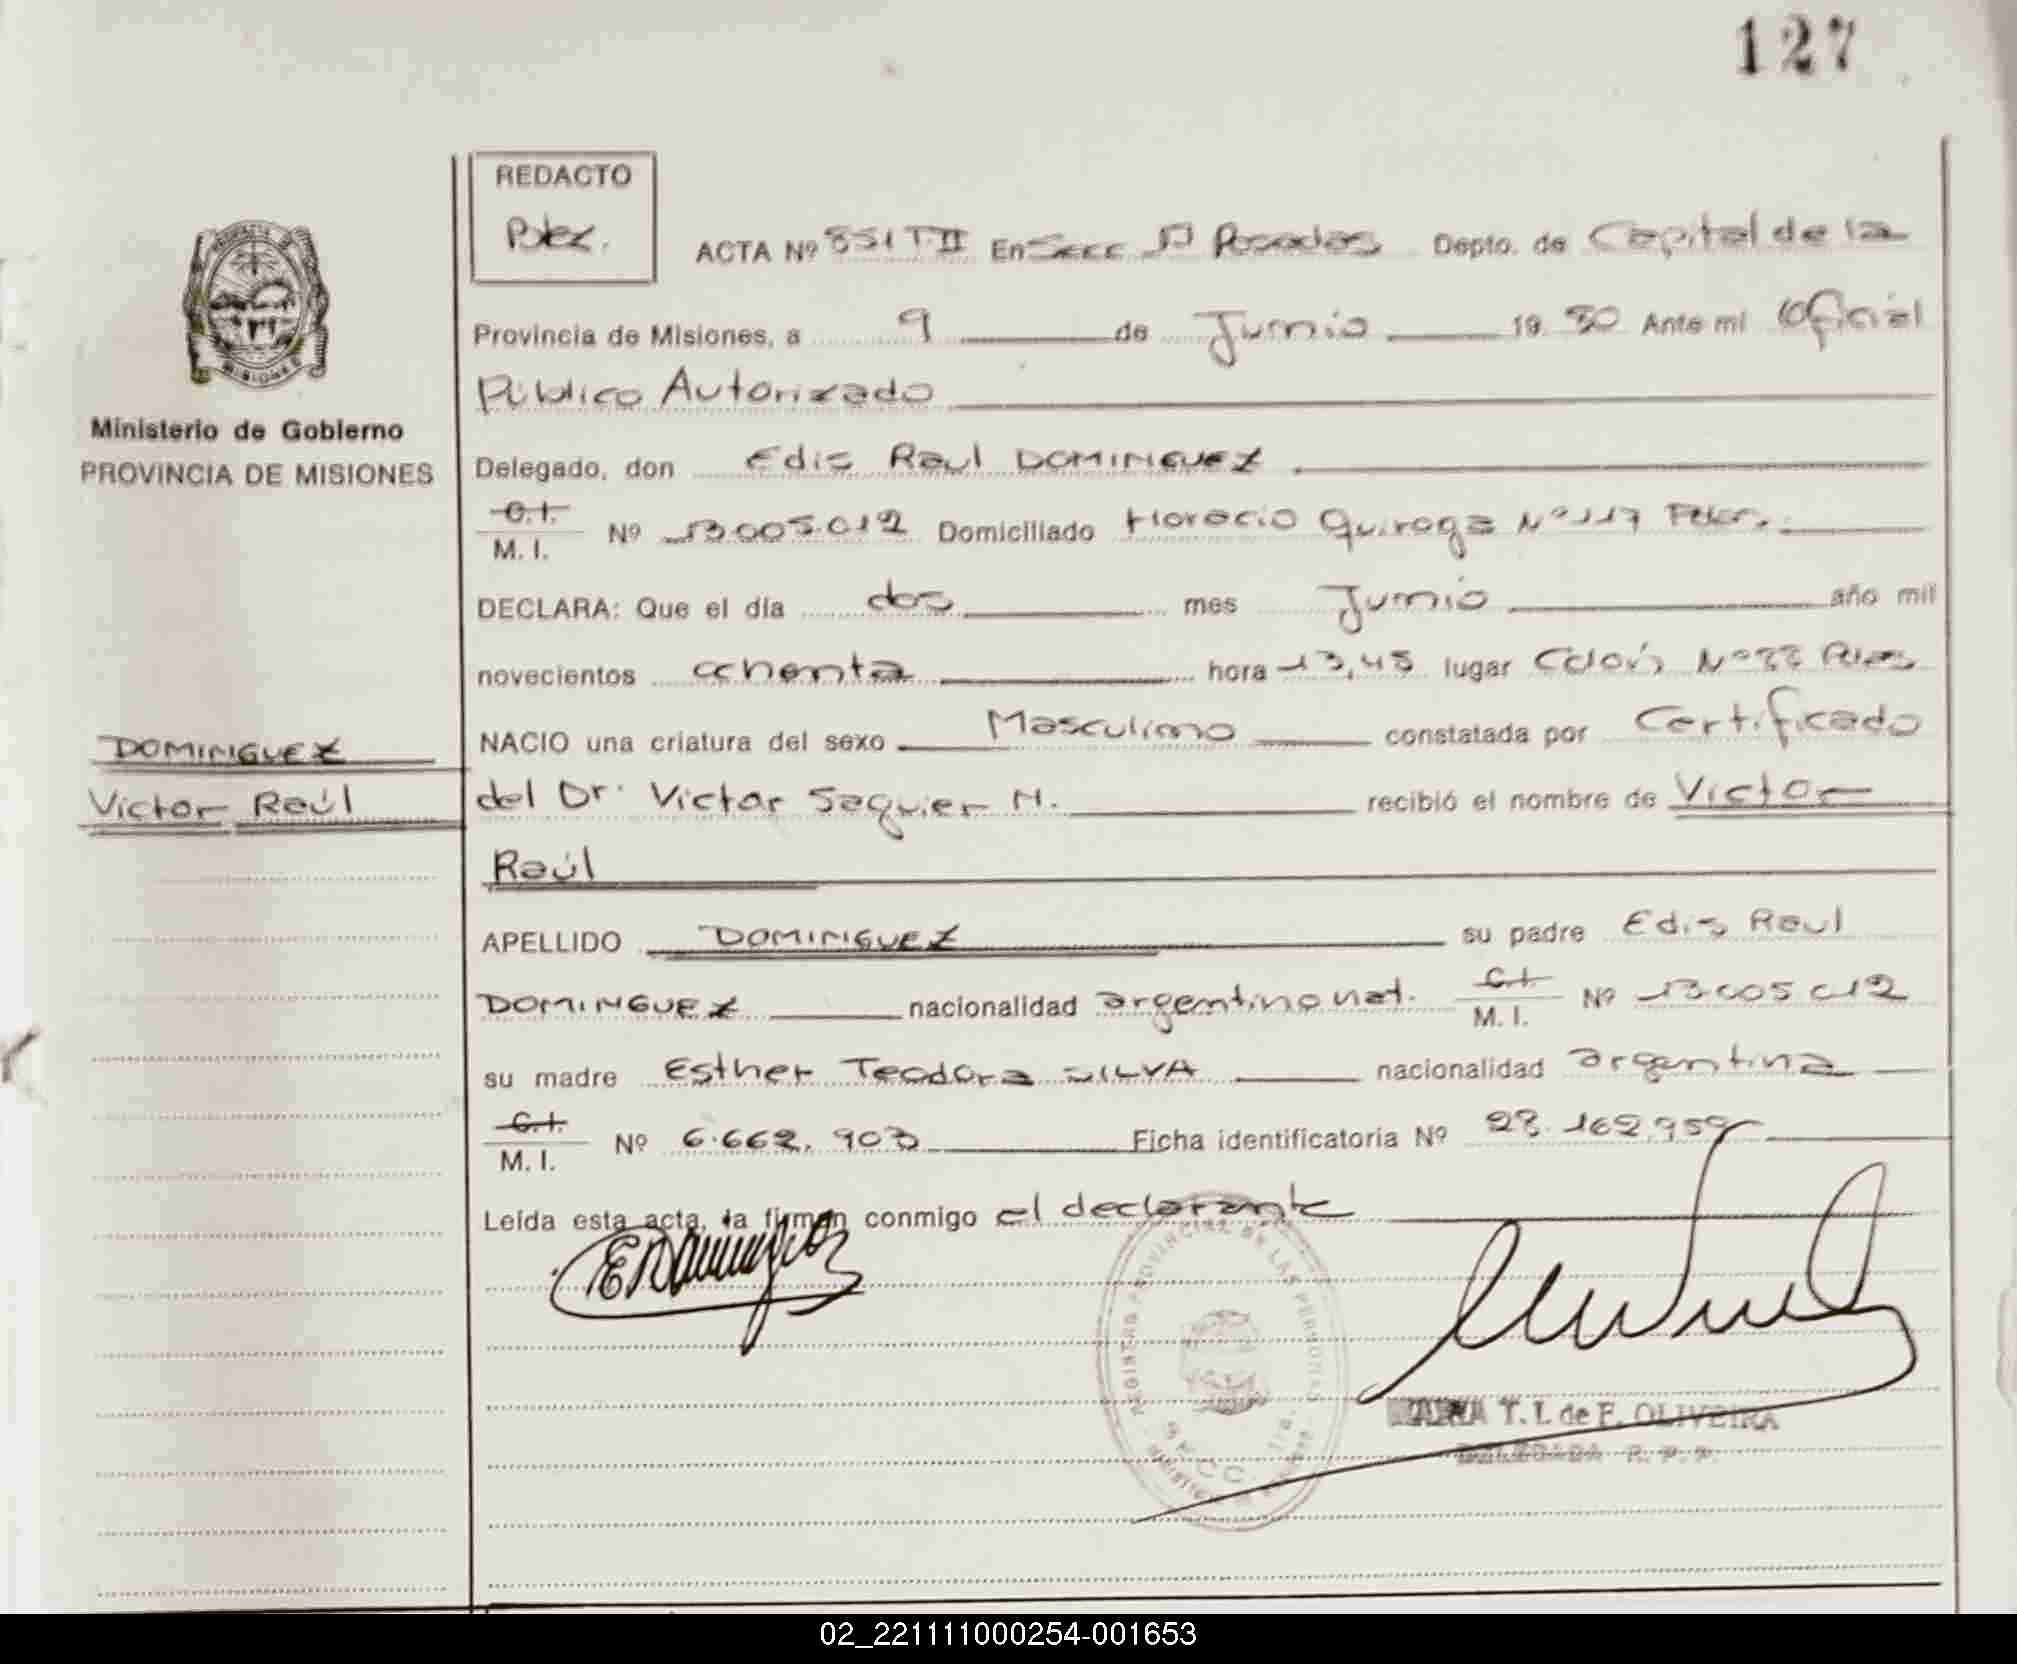 127
REDACTO
ACTA Nº 851 T.II En Secc 1ª Posadas Depto. de Capital de la
Provincia de Misiones, a 9 de Junio 19 80 Ante mi Oficial
Público Autorizado
Ministerio de Gobierno
PROVINCIA DE MISIONES
Delegado, don Edis Raul DOMINGUEZ
C.I.
M. I. Nº 13.005.012 Domiciliado Horacio Quiroga Nº 117
DECLARA: Que el día dos mes Junio año mil
novecientos ochenta hora 13,45 lugar Colón Nº
NACIO una criatura del sexo Masculino constatada por Certificado
DOMINGUEZ
Victor Raúl
del Dr. Victor Seguier M. recibió el nombre de Victor
Raúl
APELLIDO DOMINGUEZ su padre Edis Raul
DOMINGUEZ nacionalidad argentino nat. C.I.
M. I. Nº 13.005.012
su madre Esther Teodora SILVA nacionalidad argentina
C.I.
M. I. Nº 6.662.903 Ficha identificatoria Nº 28.162.959
Leída esta acta, la firman conmigo el declarante
REGISTRO PROVINCIAL DE LAS PERSONAS
SECC. 1a.
MARIA T. I. de F. OLIVEIRA
DELEGADA R. P. P.
02_221111000254-001653